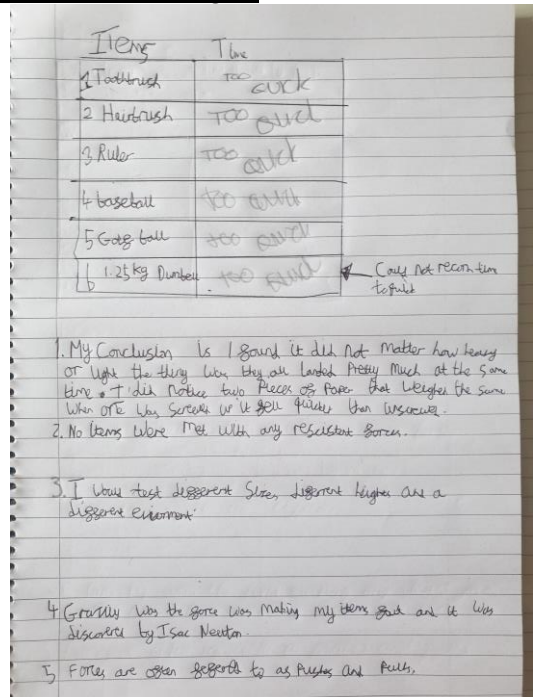 Items Time
1 Toothbrush Too quick
2 Hairbrush Too quick
3 Ruler Too quick
4 baseball too quick
5 Golg ball too quick
6 1.25kg Dumbell too quick
Could not recon time
to quick
1. My Conclusion is I found it did not matter how heavy
or light the thing was they all landed Pretty Much at the Same
time. I did notice two Pieces of Paper that weighed the same
when one was up it fell than
2. No items were met with any resistent forces.
3. I would test different size, different heights and a
different enivorment
4 Gravity was the force was making my items and it was
discovered by Isac Newton.
5 Forces are often to as Pushes and Pulls.